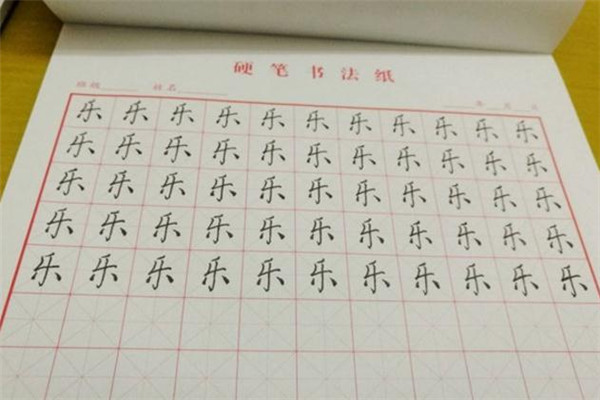 硬笔书法纸
班级 姓名 年 月 日
乐乐乐乐乐乐乐乐乐乐乐
乐乐乐乐乐乐乐乐乐乐乐
乐乐乐乐乐乐乐乐乐乐乐
乐乐乐乐乐乐乐乐乐乐乐
乐乐乐乐乐乐乐乐乐乐乐